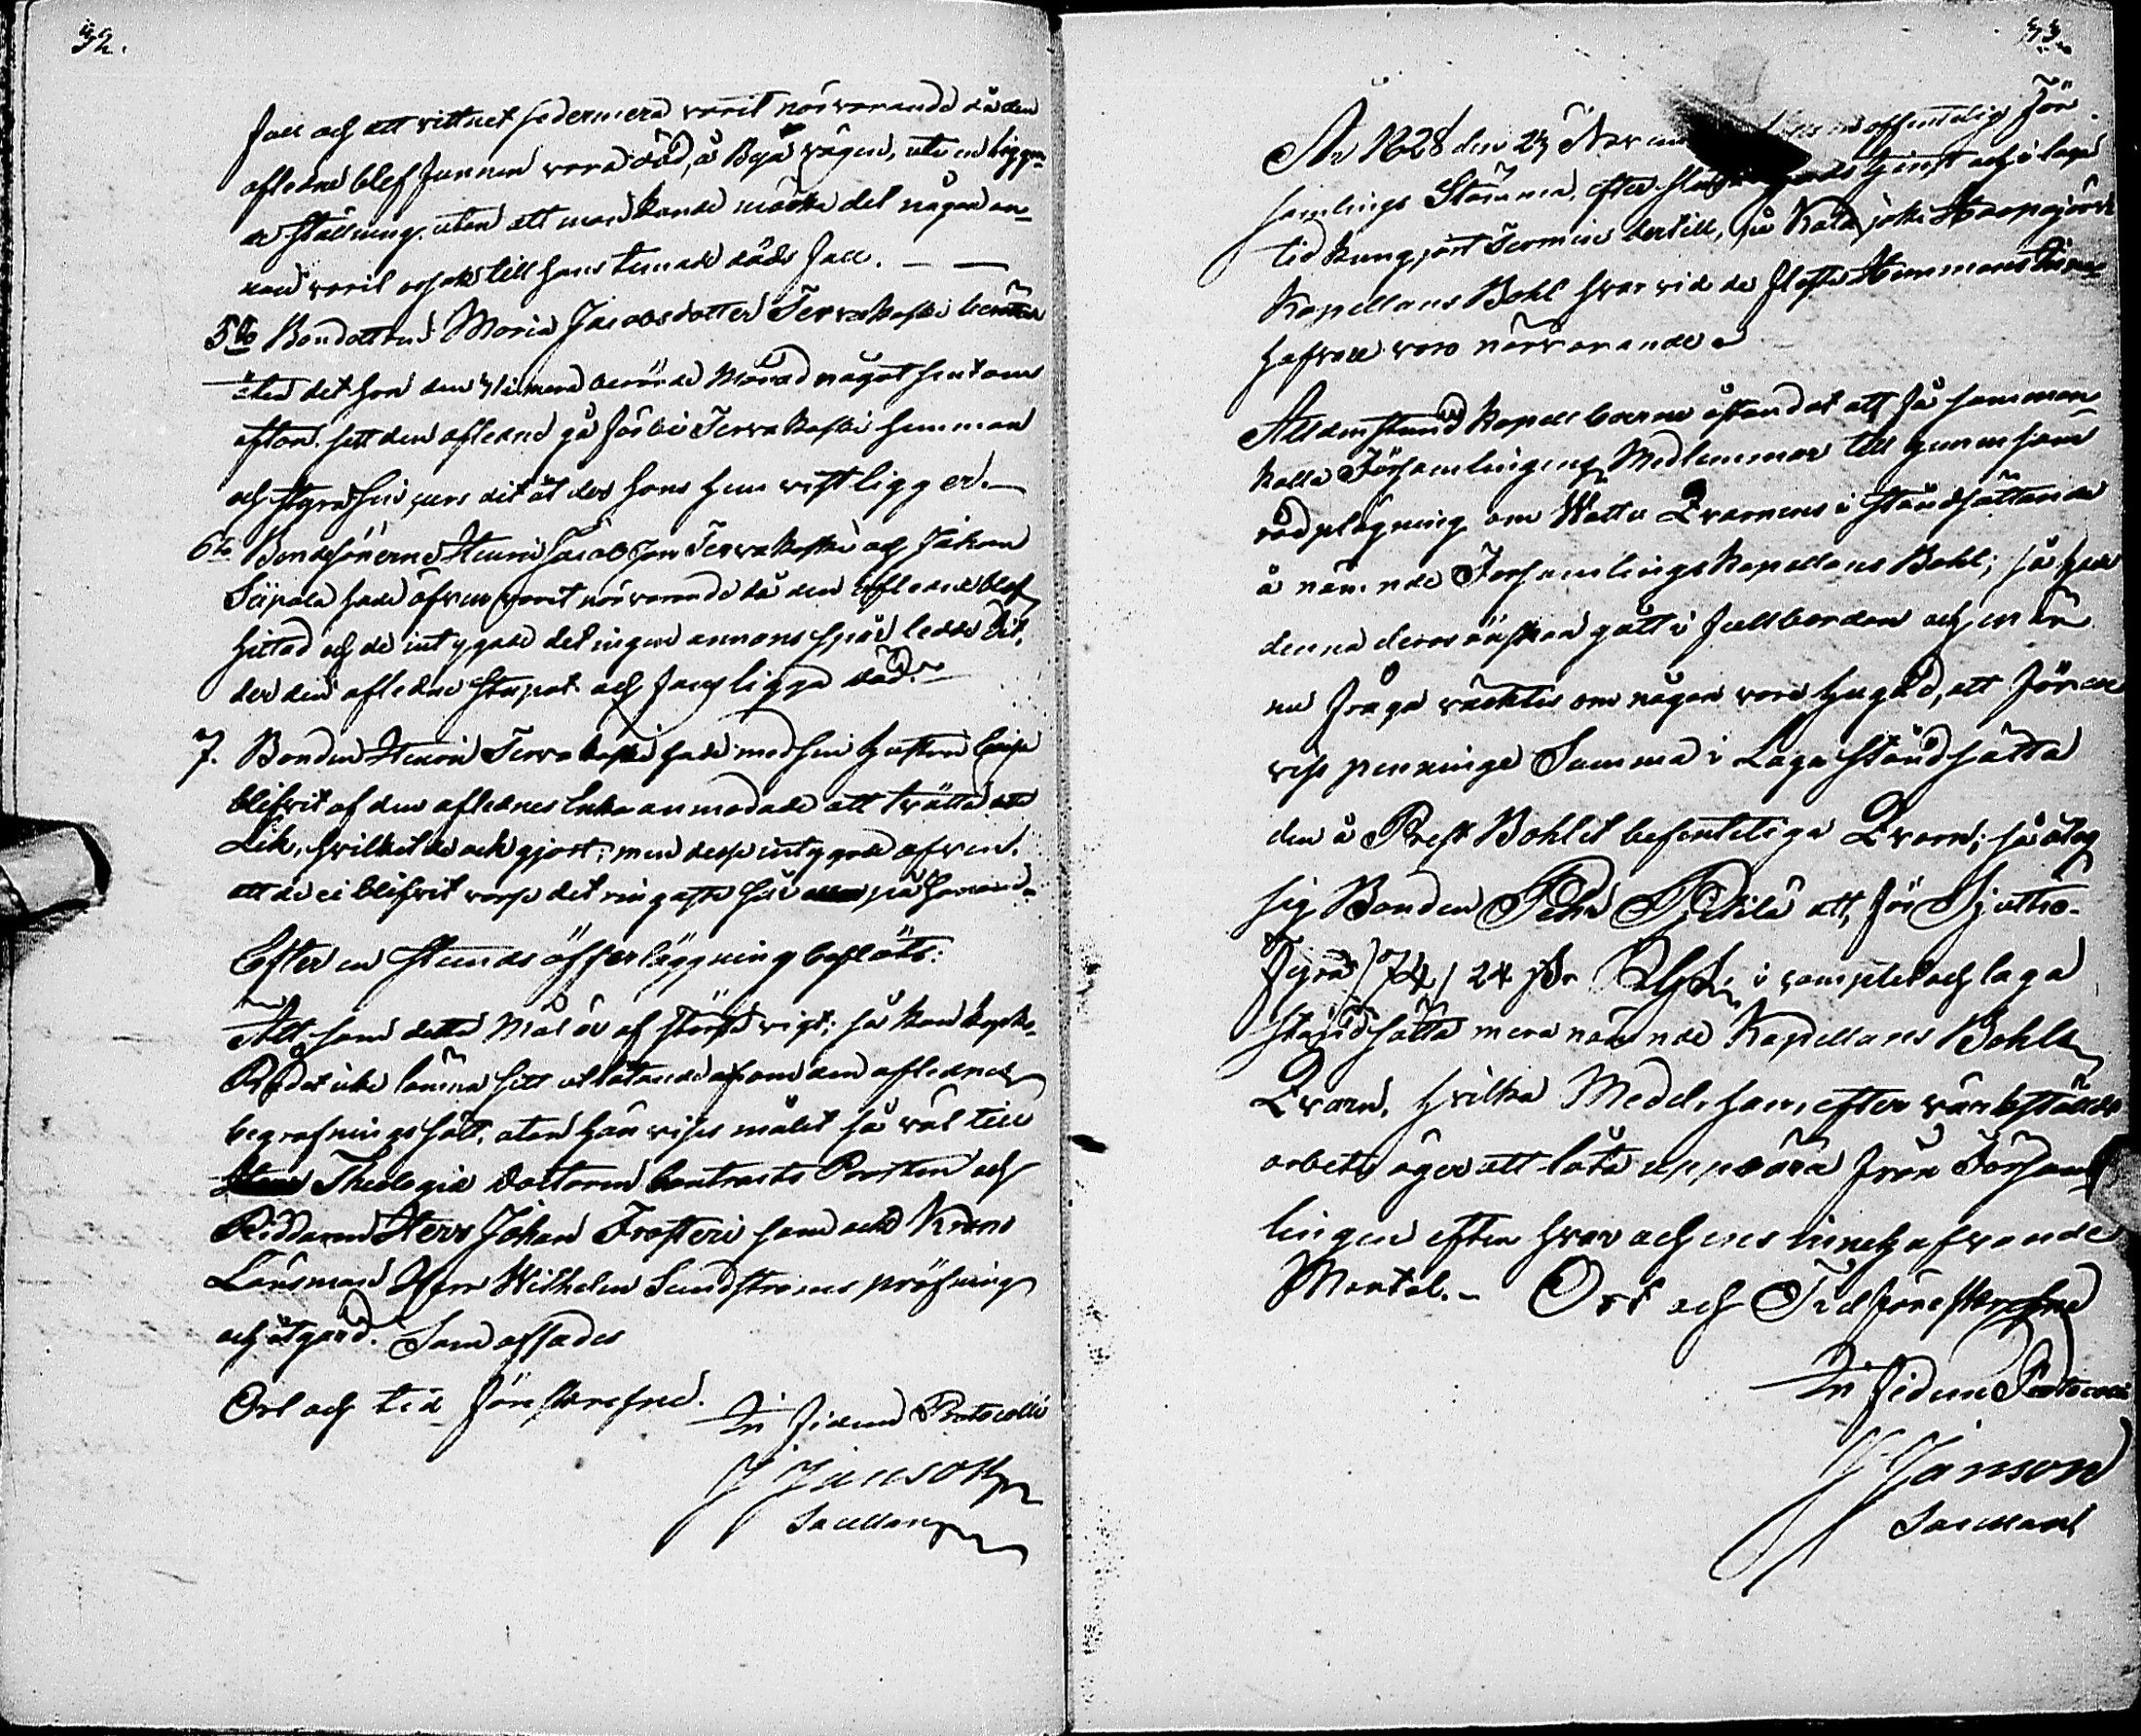 32.
fall och att vittnet sedermera varit närvarande då den
afledne blef funnen vara död, å Byä vägen, uti en liggan-
de ställning, utan att man kunde märka det någon an-
nan varit orsak till hans timade döds fall. — —
5to Bondottren Maria Jacobsdotter Tervakoski berätta-
de det hon den i mera berörde Månad något sent om
afton sett den afledne gå förbi Tervakoski hemman
och styra sin curs dit åt der hans hemvist ligger. —
6to Bondesönerne Henric Jacobsson Tervakoski och Johan
Säpälä hade äfven varit närvarande då den aflidne blef
hittad och de intygade det ingen annans spår ledde dit,
der den aflidne stupat och fans ligga död. —
7. Bonden Henric Tervakoski hade med sin hustru Caisa
blifvit af den aflednes Enka anmodade att tvätta
Lik, hvilket de ock gjort; men desse intygade äfven,
att de ei blifvit varse det ringaste sår på honom. —
Efter en stunds öfverläggning beslöts:
Alt som detta Mål är af största vigt; så kan kyrko-
Rådet icke lämna sitt utlåtande om den aflednes
begrafnings sätt, utan hänvises målet så väl till
Theologie Doctoren Contracts Prosten och
Riddaren Herr Johan Frosteri som ock Krono
Länsman Herr Wilhelm Sundströms pröfning
och åtgärd. Som affades
Ort och tid föreskrefne.
In fidem Protocolli
J Janson
Sacellan
33.
År 1828 den 23 Novem offentelig För-
samlings Stämma, efter slutad Guds tjenst och i laga
tid kungjort Termin dertill, på Kalajoki Haapajärvi
Kapellans Bohl hvarvid de fleste Hemmans Inne-
hafvare voro närvarande
Alldenstund Kapellboerne åstundat att få samman-
kalla Församlingens Medlemmar till gemensam
rådplägning om Wattu Qvarnens i ståndsättande
å nämnde Församlings Kapellans Bohl; så har
denna deras önskan gått i fullbordan och när
nu fråga väcktes om någon vore hugad, att för en
viss penninge Summa i Laga stånd sätta
den å Prest Bohlet befinteliga Qvarn; så åtog
sig Bonden Pehr Pjetilä att, för Sjuttio-
fyra /74/ 24 s. Rgs. i complet och laga
stånd sätta mera nämnde Kapellans Bohls
Qvarn, hvilka Medel, han, efter värkstäldt
arbete äger att låta uppbära från Försam-
lingen efter hvar och ens innehafvande
Mantal. — Ort och Tid föreskrefne
In fidem Protocolli
J Janson
Sacellan